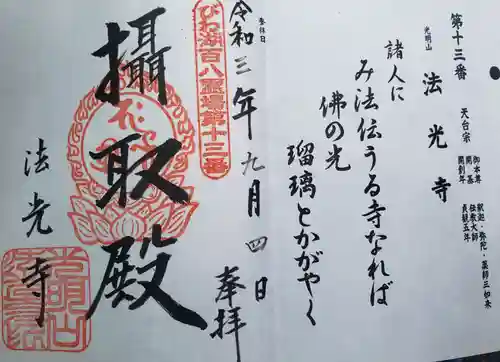 第十三番
光明山 法光寺
天台宗
御本尊 釈迦・弥陀・薬師三如来
開基 伝教大師
開創年 貞観五年
諸人に
み法伝うる寺なれば
佛の光
瑠璃とかがやく
参拝日
令和三年九月四日
奉拝
びわ湖百八霊場第十三番
攝取殿
法光寺